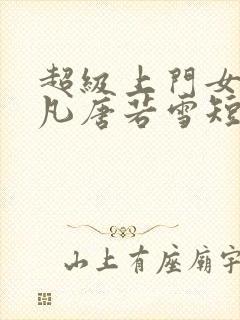 超級上門女
凡唐若雪短
山上有座廟宇